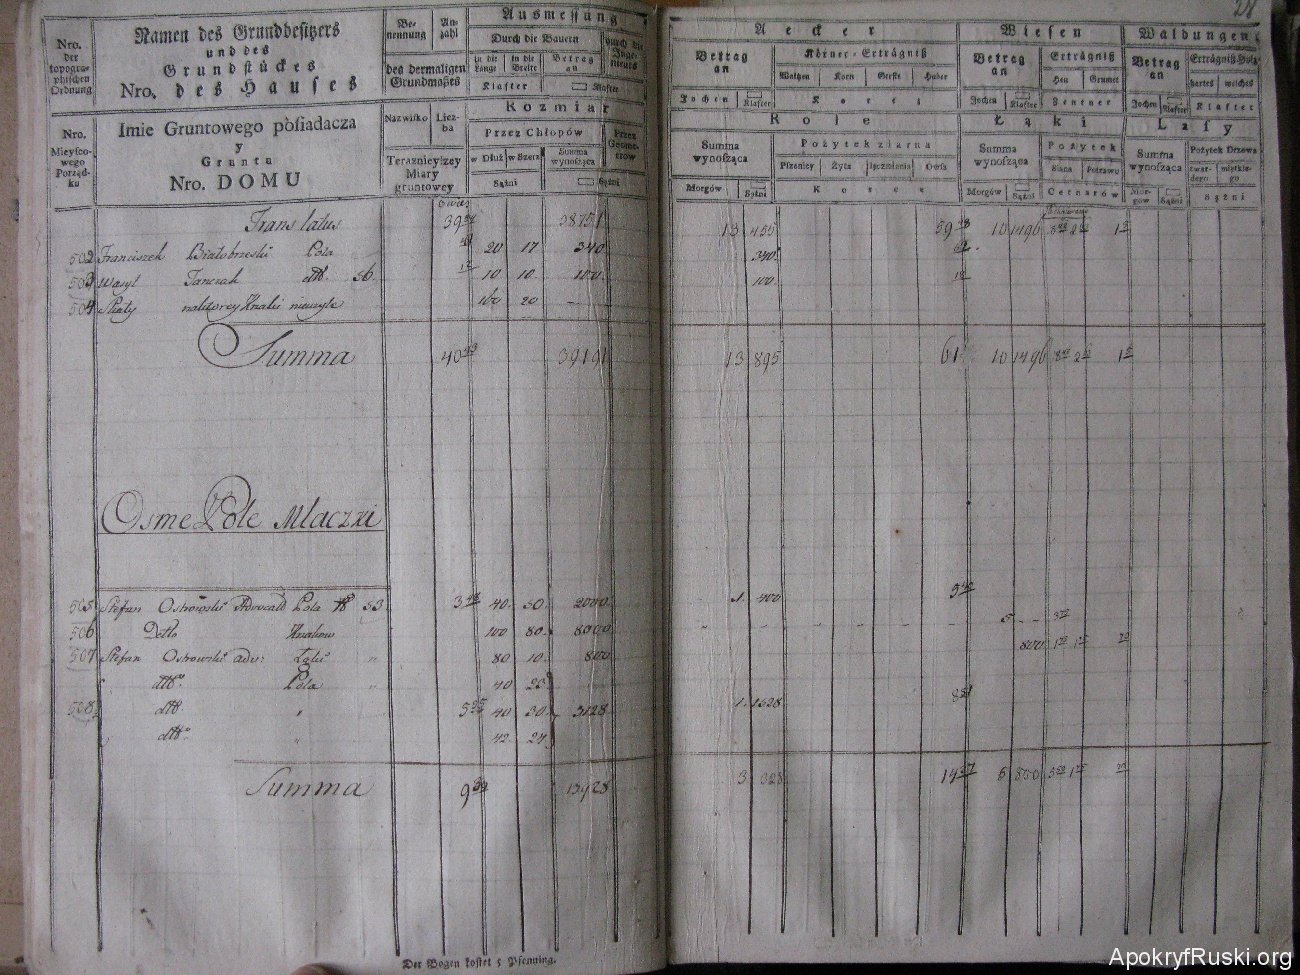 28
Nro. der topogra- phischen Ordnung
Namen des Grundbesitzers
und des
Grundstückes
Nro. des Hauses
Be- nennung
An- zahl
des dermaligen Grundmaßes
Ausmessung
Durch die Bauern
in die Länge
in die Breite
Betrag an
Klafter
Klafter
Durch die Inge- nieurs
Nro. Mieysco- wego Porząd- ku
Imie Gruntowego pòsiadacza
y
Gruntu
Nro. DOMU
Nazwisko
Licz- ba
Teraznieyszey Miary gruntowey
Rozmiar
Przez Chłopów
w Dłuż
w Szerz
Summa wynosząca
Sążni
Sążni
Przez Geome- trow
Aecker
Betrag an
Körner-Erträgniß
Waitzen
Korn
Gerste
Haber
Jochen
Klafter
Korez
Role
Summa wynosząca
Pożytek ziarna
Pszenicy
Żyta
Jęczmienia
Owsa
Morgów
Sążni
Korce
Wiesen
Betrag an
Erträgniß
Heu
Grumet
Jochen
Klafter
Zentner
Łąki
Summa wynosząca
Pożytek
Siana
Potrawu
Morgów
Sążni
Cetnarów
Waldungen
Betrag an
Erträgniß Holz
hartes
weiches
Jochen
Klafter
Klafter
Lasy
Summa wynosząca
Pożytek Drzewa
twar- dego
miętkie- go
Mor- gow
Sążni
Sążni
Translatus 38751 13 455 10 1496
502 Franciszek Białobrzeski Pola 20 17 340 340
503 Wasyl Tanczak dtto 56 10 10 100 100
504 160 20
Summa 39191 13 895 61 10 1496
Osme Pole Mlaczki
505 Stefan Ostrowski Adwocat Pola 53 40 50 2000 1 400
506 Detto 100 80 8000 5
507 Stefan Ostrowski adv: Łąki 80 10 800 800
dtto Pola 40 23
508 dtto 40 30 3128 1 1528
dtto 42 24
Summa 13928 3 328 5 800
Der Bogen kostet 5 Pfenning.
ApokryfRuski.org